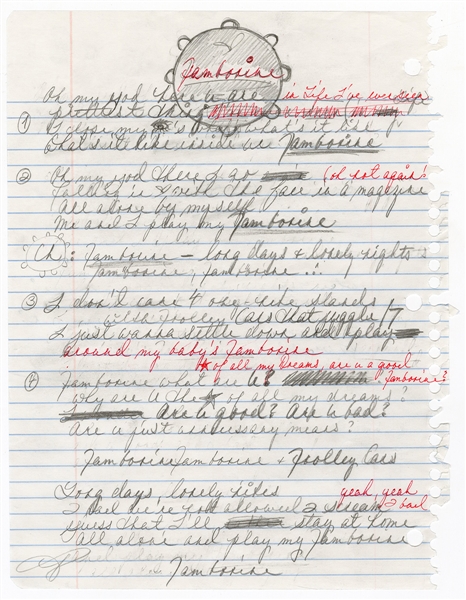 Tamborine
Oh my god here u are in life I've
prettiest thing
① I close my eyes what's it like
what's it like inside ur Tamborine
② Oh my god there I go (oh not again!)
falling in ♥ with the face in a magazine
All alone by myself
Me and I play my Tamborine
Ch: Tamborine – long days & lonely nights
Tamborine, Tamborine ...
③ I don't care 4 one-nite stands
with Trolley Cars that juggle 17
I just wanna settle down and play
around my baby's Tamborine
★ of all my dreams, are u a good Tamborine?
④ Tamborine what are u?
Why are u the ★ of all my dreams?
Are u good? Are u bad?
Are u just a necessary means?
Tamborine Tamborine & Trolley Cars
Long days, lonely nites yeah, yeah
2 bad we're not allowed 2 scream 2 bad
guess that I'll stay at home
All alone and play my Tamborine
Tamborine